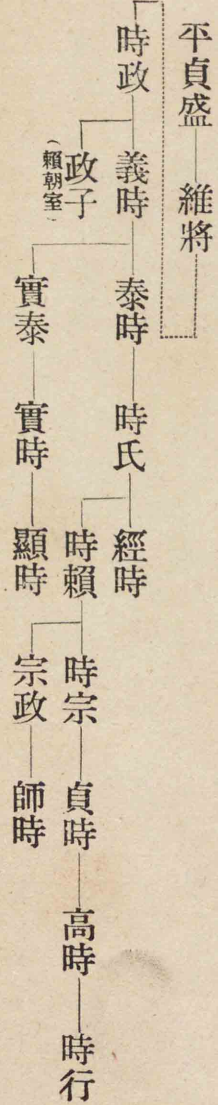 平貞盛 維將
時政 義時 泰時 時氏 經時
政子
(賴朝室)
時賴 時宗 貞時 高時 時行
實泰 實時 顯時
宗政 師時